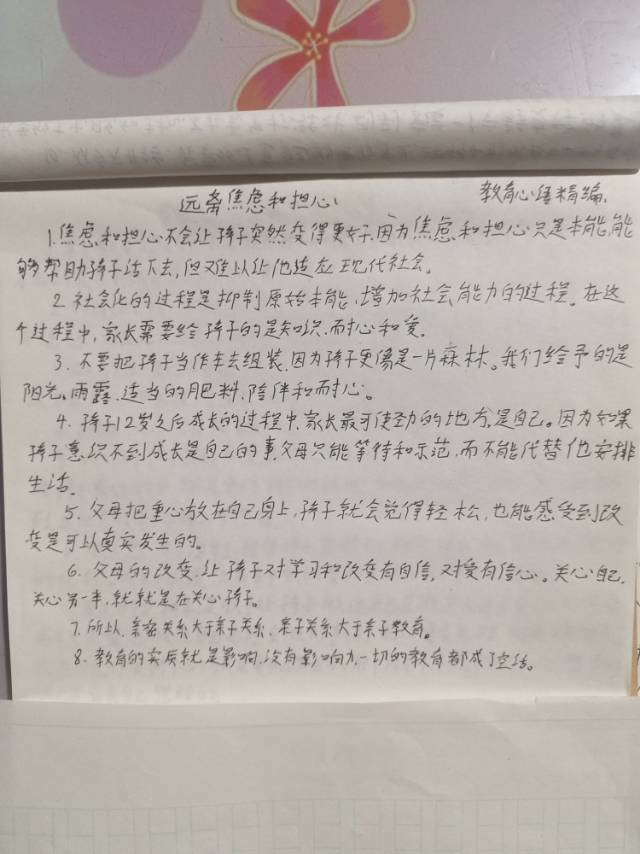 远离焦虑和担心 教育心语精编.
1.焦虑和担心不会让孩子突然变得更好.因为焦虑和担心只是本能,能
够帮助孩子活下去,但难以让他适应现代社会。
2.社会化的过程是抑制原始本能,增加社会能力的过程。在这
个过程中,家长需要给孩子的是知识.耐心和爱.
3.不要把孩子当作车去组装.因为孩子更像是一片森林。我们给予的是
阳光.雨露.适当的肥料.陪伴和耐心。
4.孩子12岁之后成长的过程中.家长最可使劲的地方,是自己。因为如果
孩子意识不到成长是自己的事.父母只能等待和示范.而不能代替他安排
生活.
5.父母把重心放在自己身上,孩子就会觉得轻松,也能感受到改
变是可以真实发生的。
6.父母的改变.让孩子对学习和改变有自信,对爱有信心。关心自己.
关心另一半,就就是在关心孩子。
7.所以.亲密关系大于亲子关系.亲子关系大于亲子教育。
8.教育的实质就是影响.没有影响力.一切的教育都成了空话。